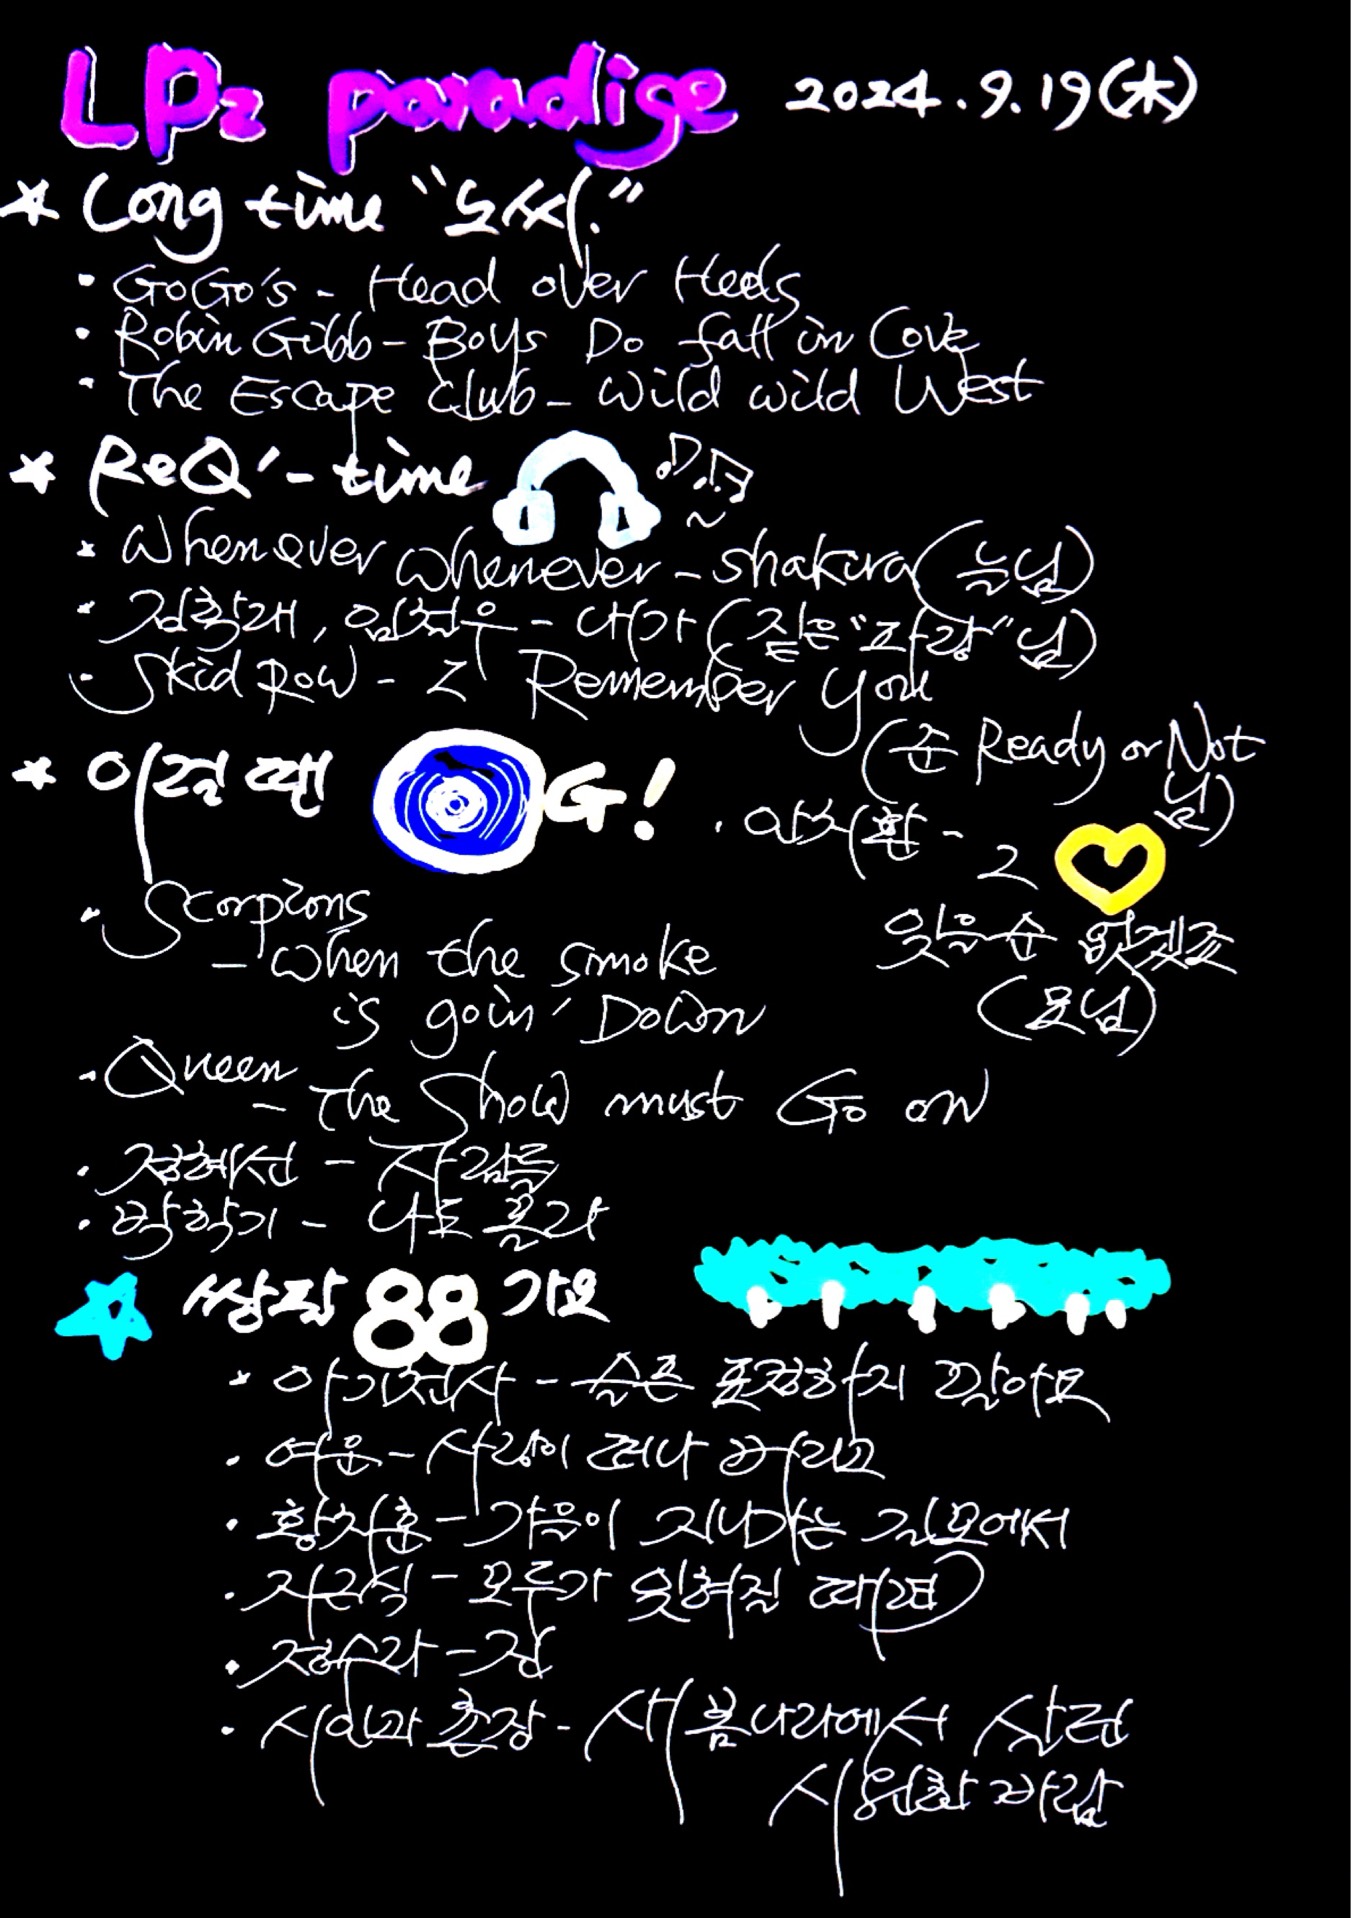 LPz paradise 2024.9.19(木)
* Long time "노씨."
· GoGo's - Head over Heels
· Robin Gibb - Boys Do fall in Love
· The Escape Club - Wild wild West
* ReQ' - time
· Whenever whenever - shakira (늘님)
· 김학래, 임철우 - 내가 (짙은"파랑"님)
· Skid Row - I Remember you
(준 Ready or Not
님)
* 이럴 땐 G!
· 양수경 - 그
잊을 순 없겠죠
(요님)
· Scorpions
- when the smoke
is goin' Down
· Queen
- The Show must Go on
· 정혜선 - 자갈들
· 박학기 - 나도 몰라
쌍팔 88 가요
· 아기천사 - 슬픈 표정하지 말아요
· 여운 - 사랑이 떠나 버리고
· 황치훈 - 가을이 지나가는 길모에서
· 지근식 - 모두가 잊혀질 때면
· 정수라 - 짐
· 시인과 촌장 - 새 봄나라에서 살던
시원한 바람